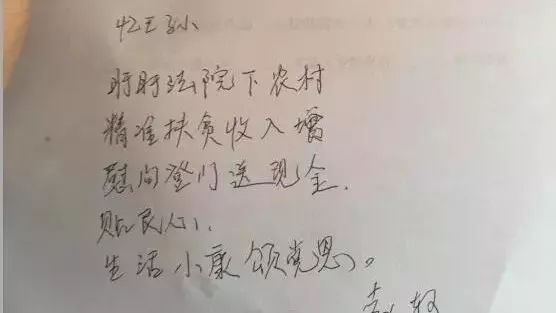 忆王孙
盱盱法院下农村
精准扶贫收入增
慰问登门送现金.
贴民心、
生活小康颂党恩。